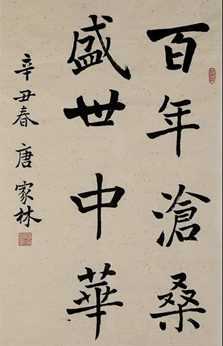 百年滄桑
盛世中華
辛丑春 唐家林